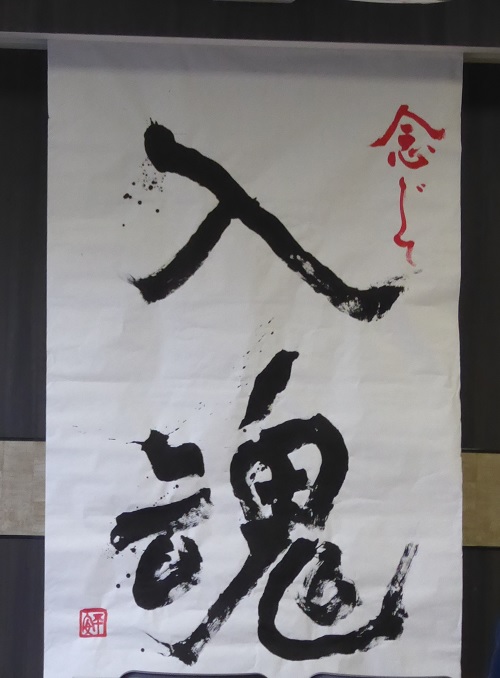 念じて
入魂